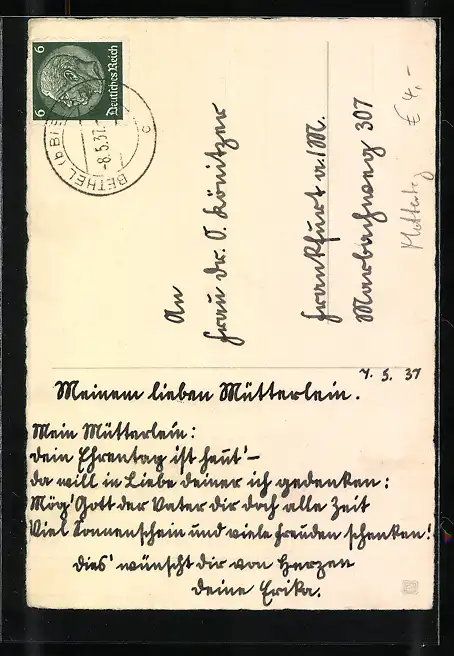 6
6
Deutsches Reich
BETHEL (b BIE
-8.5.37.
c
€ 4,-
Muttertag
An
Frau Dr. O. Könitzer
Frankfurt a./M.
Marbachweg 307
7. 5. 37
Meinem lieben Mütterlein.
Mein Mütterlein:
Dein Ehrentag ist heut' –
da will in Liebe deiner ich gedenken:
Mög' Gott der Vater dir doch alle Zeit
Viel Sonnenschein und viele Freuden schenken!
Dies' wünscht dir von Herzen
Deine Erika.